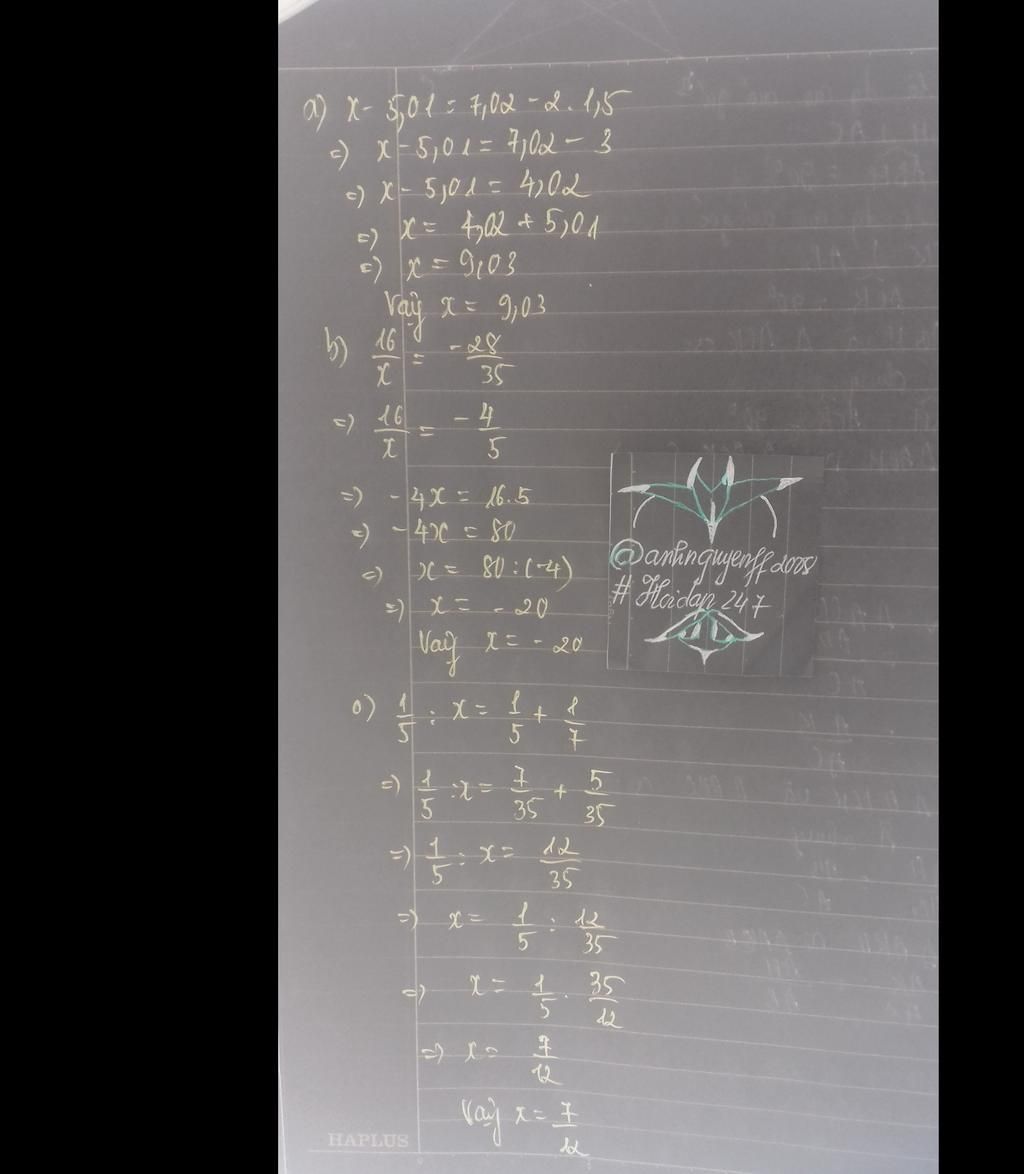 a) x - 5,01 = 7,02 - 2.1,5
=) x - 5,01 = 7,02 - 3
=) x - 5,01 = 4,02
=) x = 4,02 + 5,01
=) x = 9,03
Vậy x = 9,03
b) 16/x = -28/35
=) 16/x = -4/5
=) -4x = 16.5
=) -4x = 80
=) x = 80 : (-4)
=) x = -20
Vậy x = -20
@anhnguyenff2008
# Hoidap 247
c) 1/5 : x = 1/5 + 1/7
=) 1/5 : x = 7/35 + 5/35
=) 1/5 : x = 12/35
=) x = 1/5 : 12/35
=) x = 1/5 . 35/12
=) x = 7/12
Vậy x = 7/12
HAPLUS